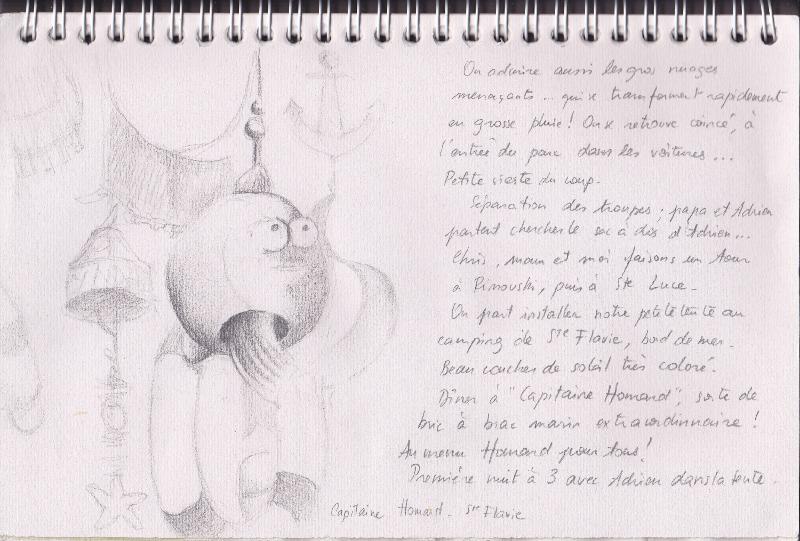 On admire aussi les gros nuages
menaçants... qui se transforment rapidement
en grosse pluie! On se retrouve coincé, à
l'entrée du parc dans les voitures...
Petite sieste du coup.
Séparation des troupes; papa et Adrien
partent chercher le sac à dos d'Adrien...
Chris, mam et moi faisons un tour
à Rimouski, puis à Ste Luce.
On part installer notre petite tente au
camping de Ste Flavie, bord de mer.
Beau coucher de soleil très coloré.
Dîner à "Capitaine Homard", sorte de
bric à brac marin extraordinnaire!
Au menu Homard pour tous!
Première nuit à 3 avec Adrien dans la tente.
Capitaine Homard - Ste Flavie